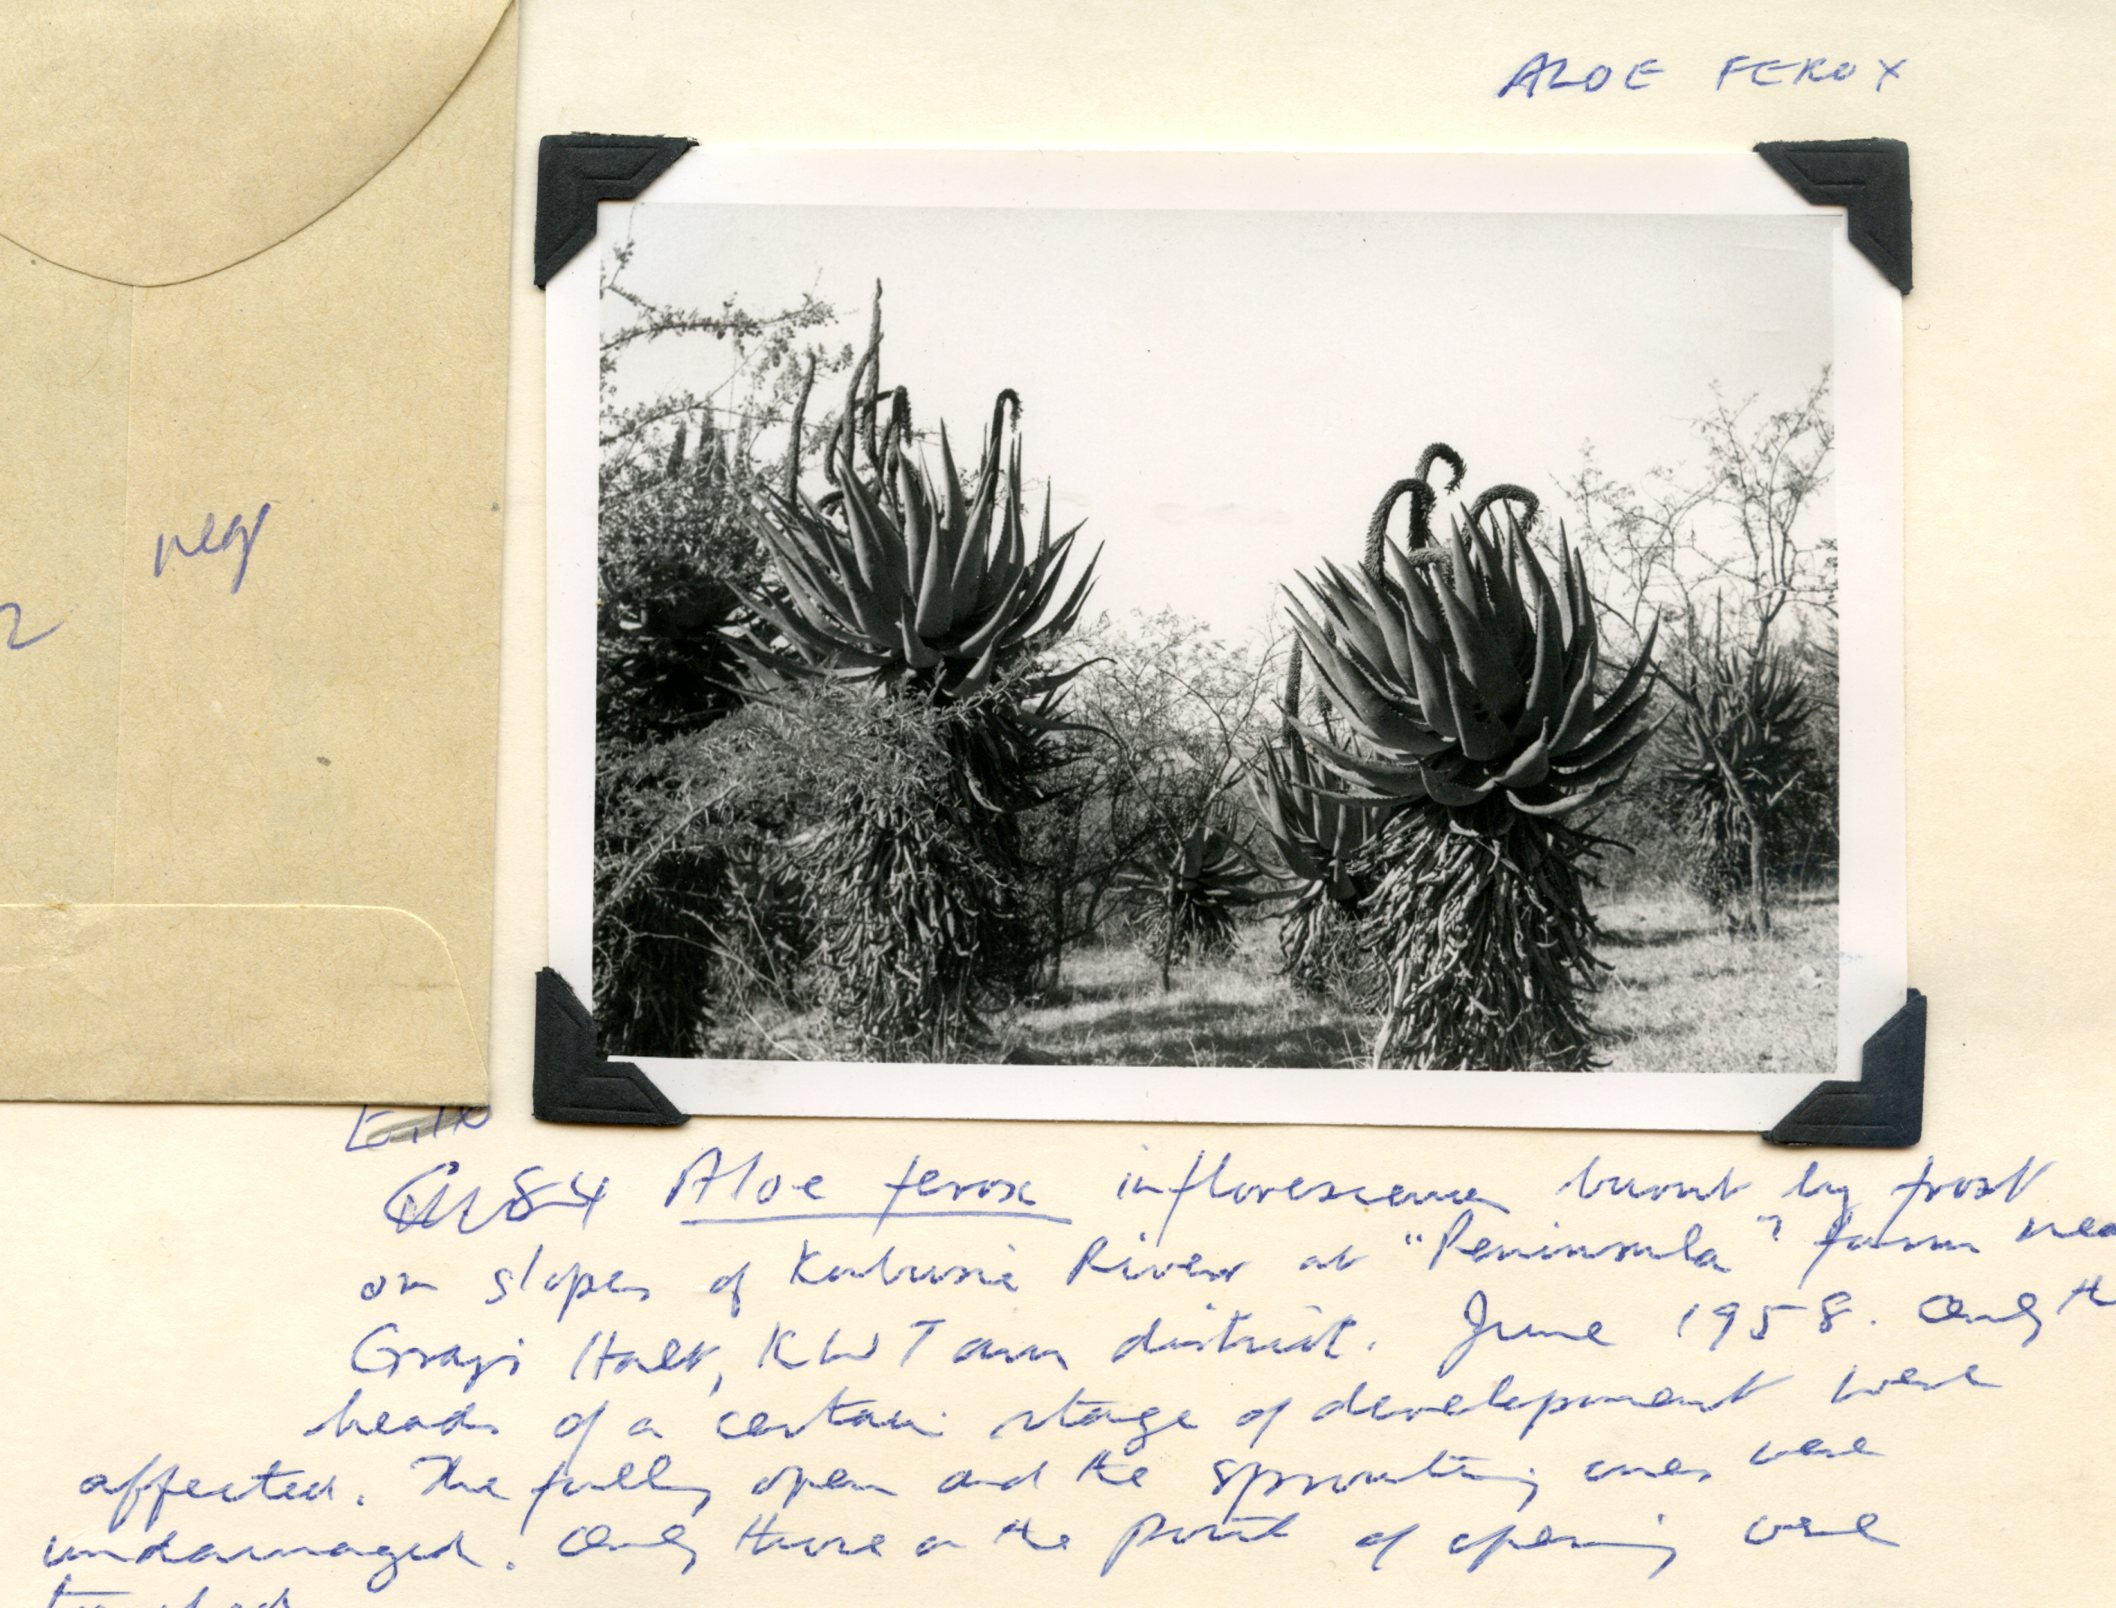 ALOE FEROX
neg
2
84 Aloe ferox inflorescence burnt by frost
on slopes of Kabusie River at "Peninsula" farm nea
Grays Halt, KWTown district. June 1958. Only the
heads of a certain stage of development were
affected. The fully open and the sprouting ones were
undamaged. Only those on the point of opening were